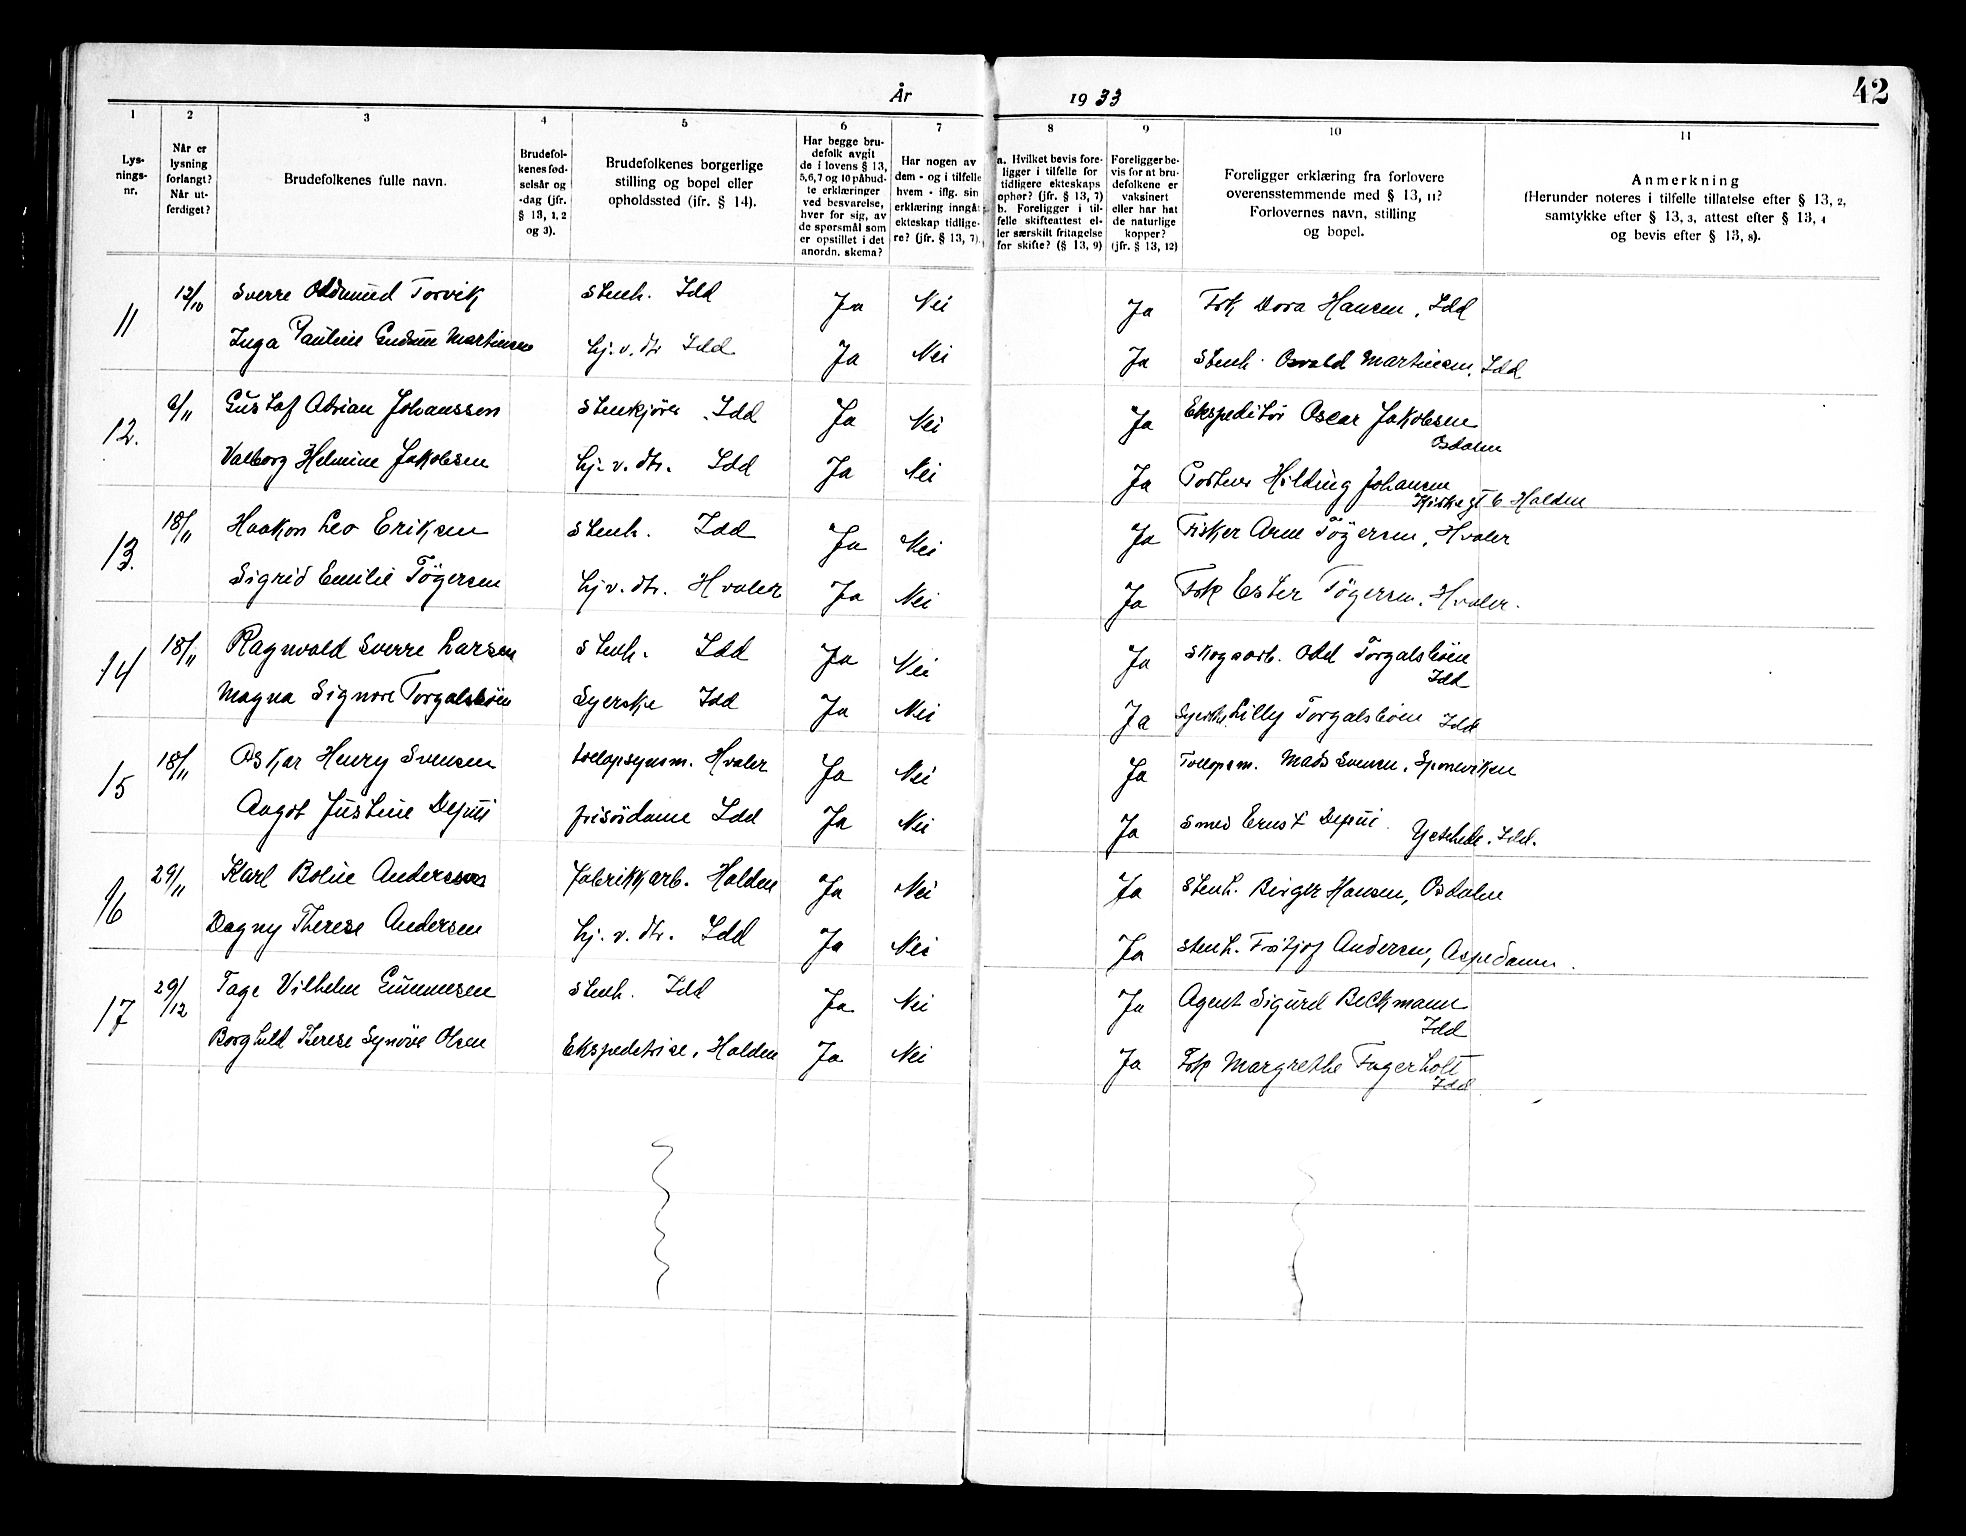 År 1933
42
1 2 3 4 5 6 7 8 9 10 11
Lys-
nings-
nr.
Når er
lysning
forlangt?
Når ut-
ferdiget?
Brudefolkenes fulle navn.
Brudefol-
kenes fød-
selsår og
-dag (jfr.
§ 13, 1, 2
og 3).
Brudefolkenes borgerlige
stilling og bopel eller
opholdssted (jfr. § 14).
Har begge bru-
defolk avgit
de i lovens § 13,
5,6,7 og 10 påbud-
te erklæringer
ved besvarelse,
hver for sig, av
de spørsmål som
er opstillet i det
anordn. skema?
Har nogen av
dem - og i tilfelle
hvem - iflg. sin
erklæring inngåt
ekteskap tidlige-
re? (jfr. § 13, 7).
a. Hvilket bevis fore-
ligger i tilfelle for
tidligere ekteskaps
ophør? (jfr. § 13, 7)
b. Foreligger i til-
felle skifteattest el-
ler særskilt fritagelse
for skifte? (§ 13, 9)
Foreligger be-
vis for at bru-
defolkene er
vaksinert
eller har hat
de naturlige
kopper?
(jfr. § 13, 12)
Foreligger erklæring fra forlovere
overensstemmende med § 13, 11?
Forlovernes navn, stilling
og bopel.
Anmerkning
(Herunder noteres i tilfelle tillatelse efter § 13, 2,
samtykke efter § 13, 3, attest efter § 13, 4
og bevis efter § 13, 8).
11 12/10 Sverre Oddmund Torvik stenh. Idd Ja Nei Ja Frk Dora Hansen, Idd
Inga Pauline Gudrun Martinsen hj.v.dtr Idd Ja Nei Ja Stenh. Osvald Martinsen, Idd
12. 6/11 Gustaf Adrian Johanssen Stenkjører Idd Ja Nei Ja Ekspeditör Oscar Jakobsen
Osdalen
Valborg Helmine Jakobsen hj.v.dtr. Idd Ja Nei Ja Portner Hilding Johansen
Kirkegt 6 Halden
13. 18/11 Haakon Leo Eriksen Stenh. Idd Ja Nei Ja Fisker Arne Tögersen, Hvaler
Sigrid Emilie Tögersen hj.v.dtr. Hvaler Ja Nei Ja Frk Ester Tögersen, Hvaler.
14 18/11 Ragnvald Sverre Larsen Stenh. Idd Ja Nei Ja Skogsarb. Odd Torgalsböen
Idd
Magna Signora Torgalsböen Syerske Idd Ja Nei Ja Syerske Lilly Torgalsböen Idd
15 18/11 Oskar Henry Svensen tollopsynsm. Hvaler Ja Nei Ja Tollopsm. Mads Svensen, Sponviken
Aagot Justine Depui frisördame Idd Ja Nei Ja Smed Ernst Depui Ystehede. Idd.
16 29/11 Karl Boline Anderssen Fabrikkarb. Halden Ja Nei Ja Stenh. Birger Hansen, Osdalen
Dagny Therese Andersen hj.v.dtr. Idd Ja Nei Ja Stenh. Fritjof Andersen, Aspedamm.
17 29/12 Tage Vilhelm Gummesen Stenh. Idd Ja Nei Ja Agent Sigurd Beckmann
Idd
Borghild Therese Synöve Olsen Ekspeditrise, Halden Ja Nei Ja Frk Margrethe Fagerholt
Idd